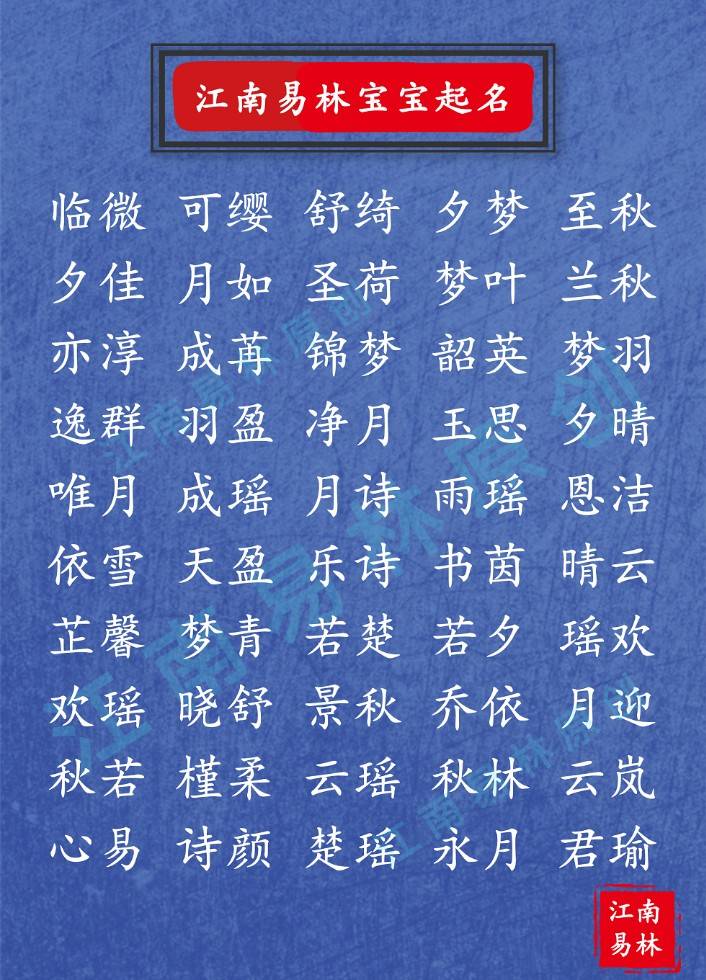 江南易林宝宝起名
临微 可缨 舒绮 夕梦 至秋
夕佳 月如 圣荷 梦叶 兰秋
亦淳 成苒 锦梦 韶英 梦羽
逸群 羽盈 净月 玉思 夕晴
唯月 成瑶 月诗 雨瑶 恩洁
依雪 天盈 乐诗 书茵 晴云
芷馨 梦青 若楚 若夕 瑶欢
欢瑶 晓舒 景秋 乔依 月迎
秋若 槿柔 云瑶 秋林 云岚
心易 诗颜 楚瑶 永月 君瑜
江南易林原创
江南易林原创
江南易林原创
江南
易林